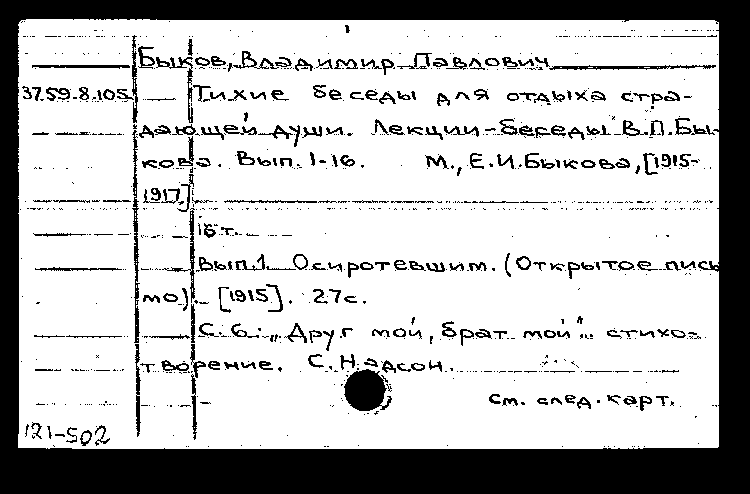 Быков, Владимир Павлович
37.59.8.105. Тихие беседы для отдыха стра-
дающей души. Лекции-беседы В.П.Бы-
кова. Вып. 1-16. М., Е.И.Быкова, [1915-
1917]
16т.
Вып.1. Осиротевшим. (Открытое пись
мо). [1915]. 27с.
С. 6: „Друг мой, брат мой“... стихо-
творение. С. Надсон.
см. след. карт.
121-502